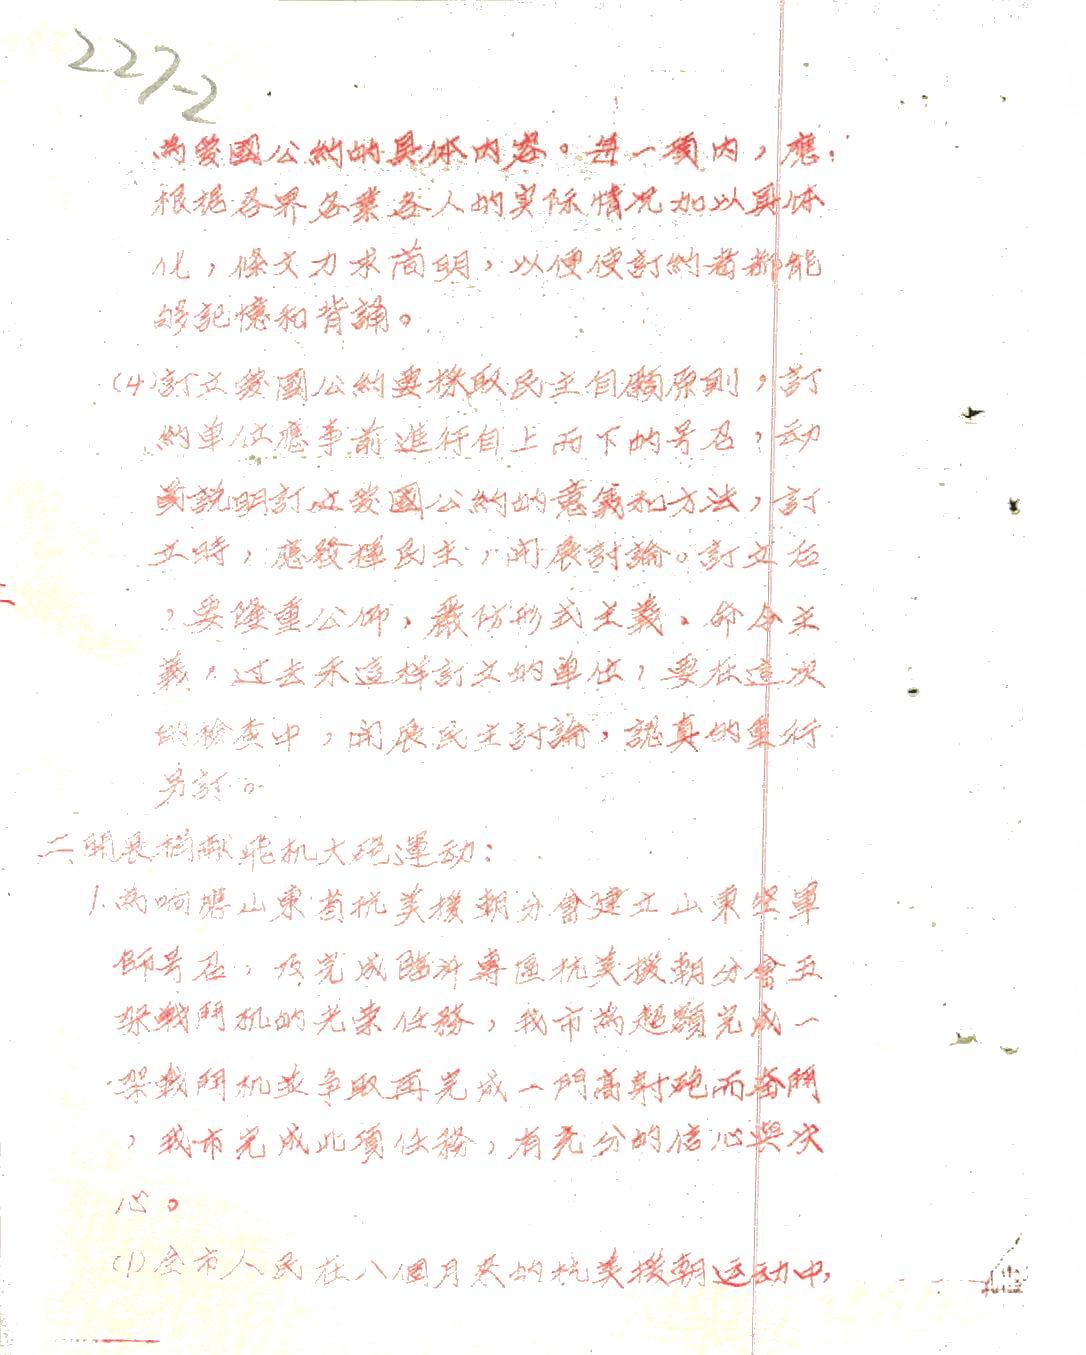 227-2
為爱國公約的具体内容。每一項内，應
根据各界各業各人的实际情况加以具体
化，條文力求简明，以便使訂約者都能
够記憶和背誦。
(4)訂立爱國公約要採取民主自願原則，訂
約单位應事前進行自上而下的号召，动
員説明訂立爱國公約的意義和方法，訂
立時，應發揮民主，開展討論。訂立后
，要隆重公佈，嚴防形式主義、命令主
義，过去未這样訂立的单位，要在這次
的檢查中，開展民主討論，認真的重行
另訂。
二、開展捐献飛机大砲運动：
1.為响應山東省抗美援朝分會建立山東空軍
師号召，及完成臨沂專區抗美援朝分會五
架戰鬥机的光荣任務，我市為超額完成一
架戰鬥机並争取再完成一門高射砲而奋鬥
，我市完成此項任務，有充分的信心與决
心。
(1)全市人民在八個月来的抗美援朝运动中，